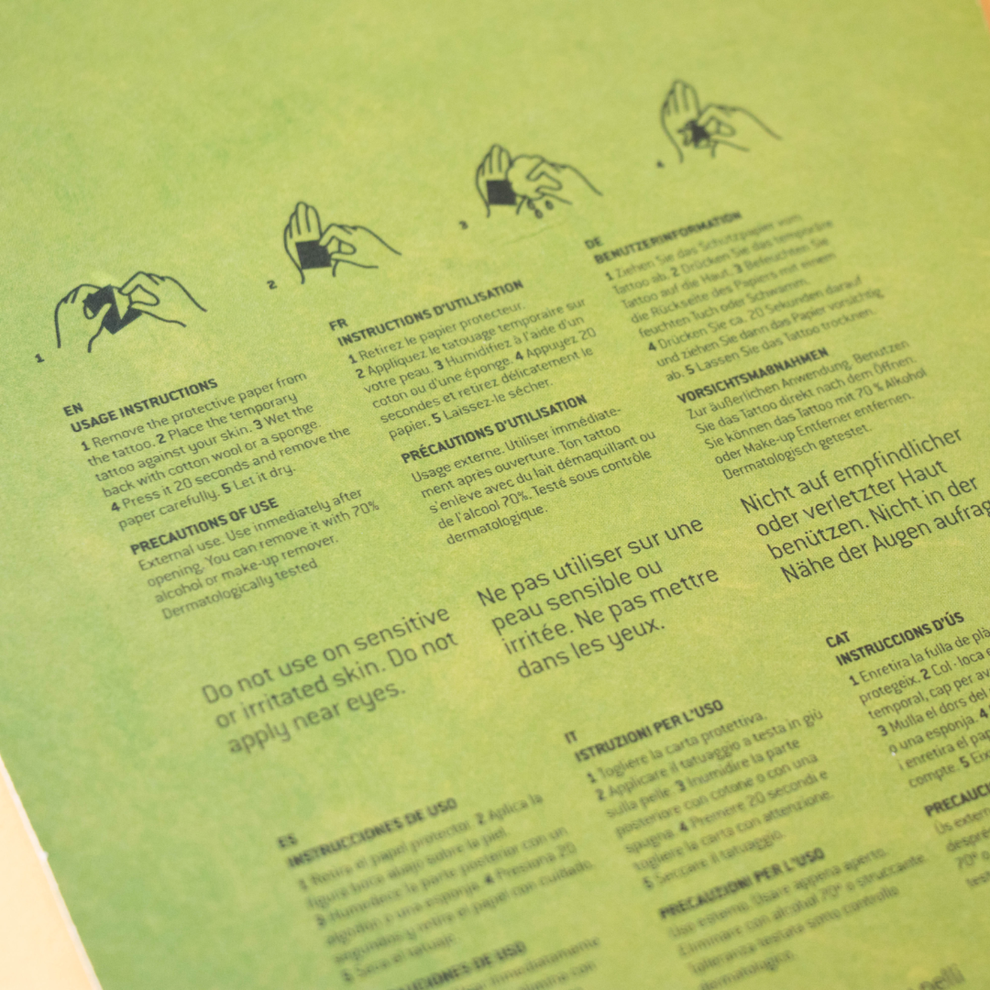 1
2
3
4
EN
USAGE INSTRUCTIONS
1 Remove the protective paper from
the tattoo. 2 Place the temporary
tattoo against your skin. 3 Wet the
back with cotton wool or a sponge.
4 Press it 20 seconds and remove the
paper carefully. 5 Let it dry.
PRECAUTIONS OF USE
External use. Use inmediately after
opening. You can remove it with 70%
alcohol or make-up remover.
Dermatologically tested
Do not use on sensitive
or irritated skin. Do not
apply near eyes.
FR
INSTRUCTIONS D'UTILISATION
1 Retirez le papier protecteur.
2 Appliquez le tatouage temporaire sur
votre peau. 3 Humidifiez à l'aide d'un
coton ou d'une éponge. 4 Appuyez 20
secondes et retirez délicatement le
papier. 5 Laissez-le sécher.
PRÉCAUTIONS D'UTILISATION
Usage externe. Utiliser immédiate-
ment après ouverture. Ton tattoo
s'enlève avec du lait démaquillant ou
de l'alcool 70%. Testé sous contrôle
dermatologique.
Ne pas utiliser sur une
peau sensible ou
irritée. Ne pas mettre
dans les yeux.
DE
BENUTZERINFORMATION
1 Ziehen Sie das Schutzpapier vom
Tattoo ab. 2 Drücken Sie das temporäre
Tattoo auf die Haut. 3 Befeuchten Sie
die Rückseite des Papiers mit einem
feuchten Tuch oder Schwamm.
4 Drücken Sie ca. 20 Sekunden darauf
und ziehen Sie dann das Papier vorsichtig
ab. 5 Lassen Sie das Tattoo trocknen.
VORSICHTSMAßNAHMEN
Zur äußerlichen Anwendung. Benutzen
Sie das Tattoo direkt nach dem Öffnen.
Sie können das Tattoo mit 70 % Alkohol
oder Make-up Entferner entfernen.
Dermatologisch getestet.
Nicht auf empfindlicher
oder verletzter Haut
benützen. Nicht in der
Nähe der Augen aufrag
ES
INSTRUCCIONES DE USO
1 Retira el papel protector. 2 Aplica la
figura boca abajo sobre la piel.
3 Humedece la parte posterior con un
algodón o una esponja. 4 Presiona 20
segundos y retira el papel con cuidado.
5 Seca el tatuaje.
DE USO
inmediatamente
con
IT
ISTRUZIONI PER L'USO
1 Togliere la carta protettiva.
2 Applicare il tatuaggio a testa in giù
sulla pelle. 3 Inumidire la parte
posteriore con cotone o con una
spugna. 4 Premere 20 secondi e
togliere la carta con attenzione.
5 Seccare il tatuaggio.
PRECAUZIONI PER L'USO
Uso esterno. Usare appena aperto.
Eliminare con alcohol 70° o struccante.
Tolleranza testata sotto controllo
dermatologico.
CAT
INSTRUCCIONS D'ÚS
1 Enretira la fulla de plà
protegeix. 2 Col·loca e
temporal, cap per av
3 Mulla el dors del
o una esponja. 4
i enretira el pap
compte. 5 Eix
PRECAUCI
Ús extern
després
70° o
test